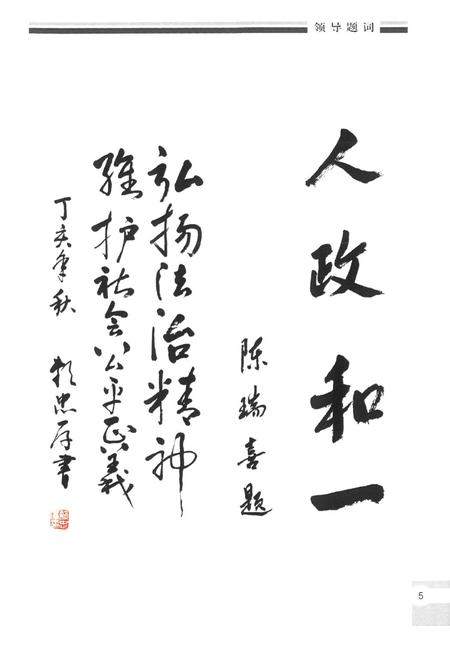 领导题词
人政和一
陈瑞喜题
弘扬法治精神
维护社会公平正義
丁亥年秋
忠厚書
5